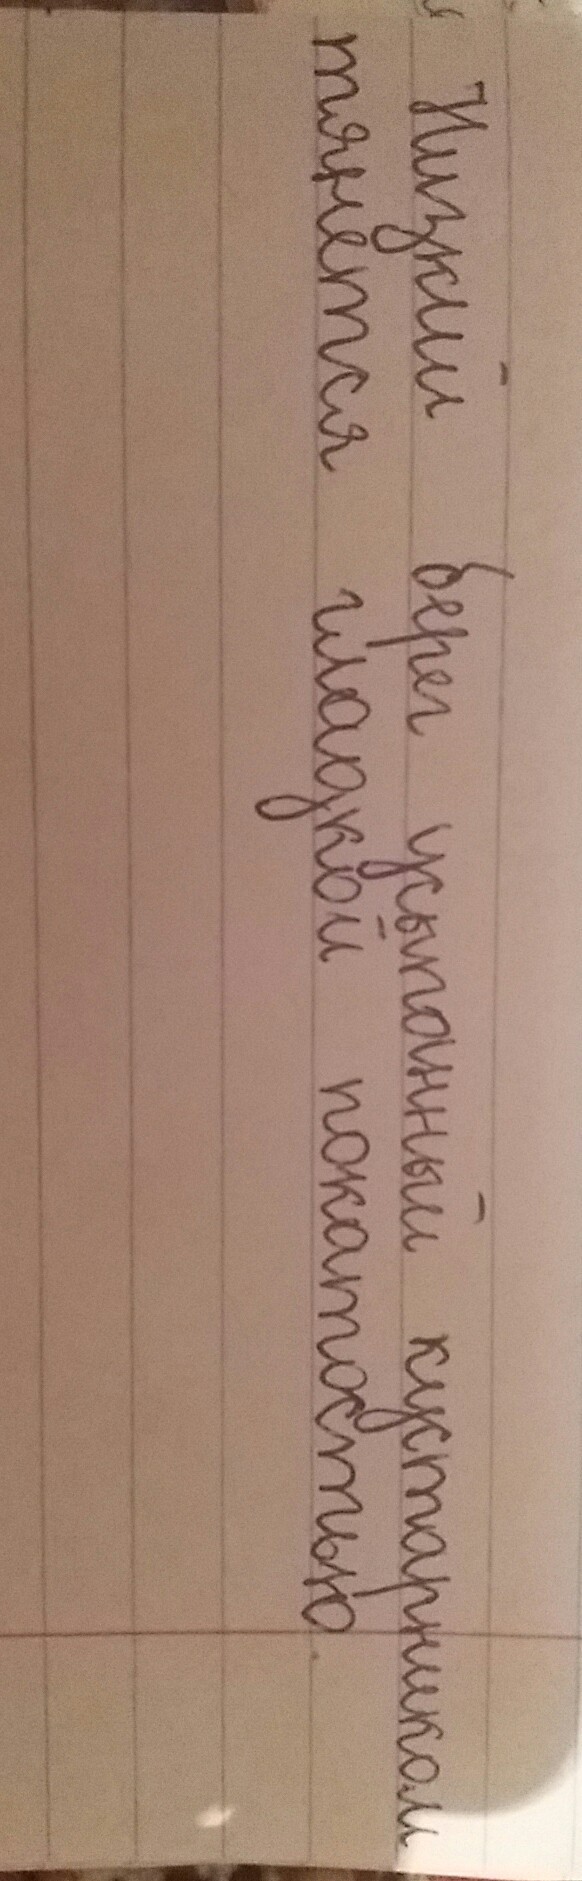 Низкий берег усыпанный кустарником
тянется гладкой покатостью.